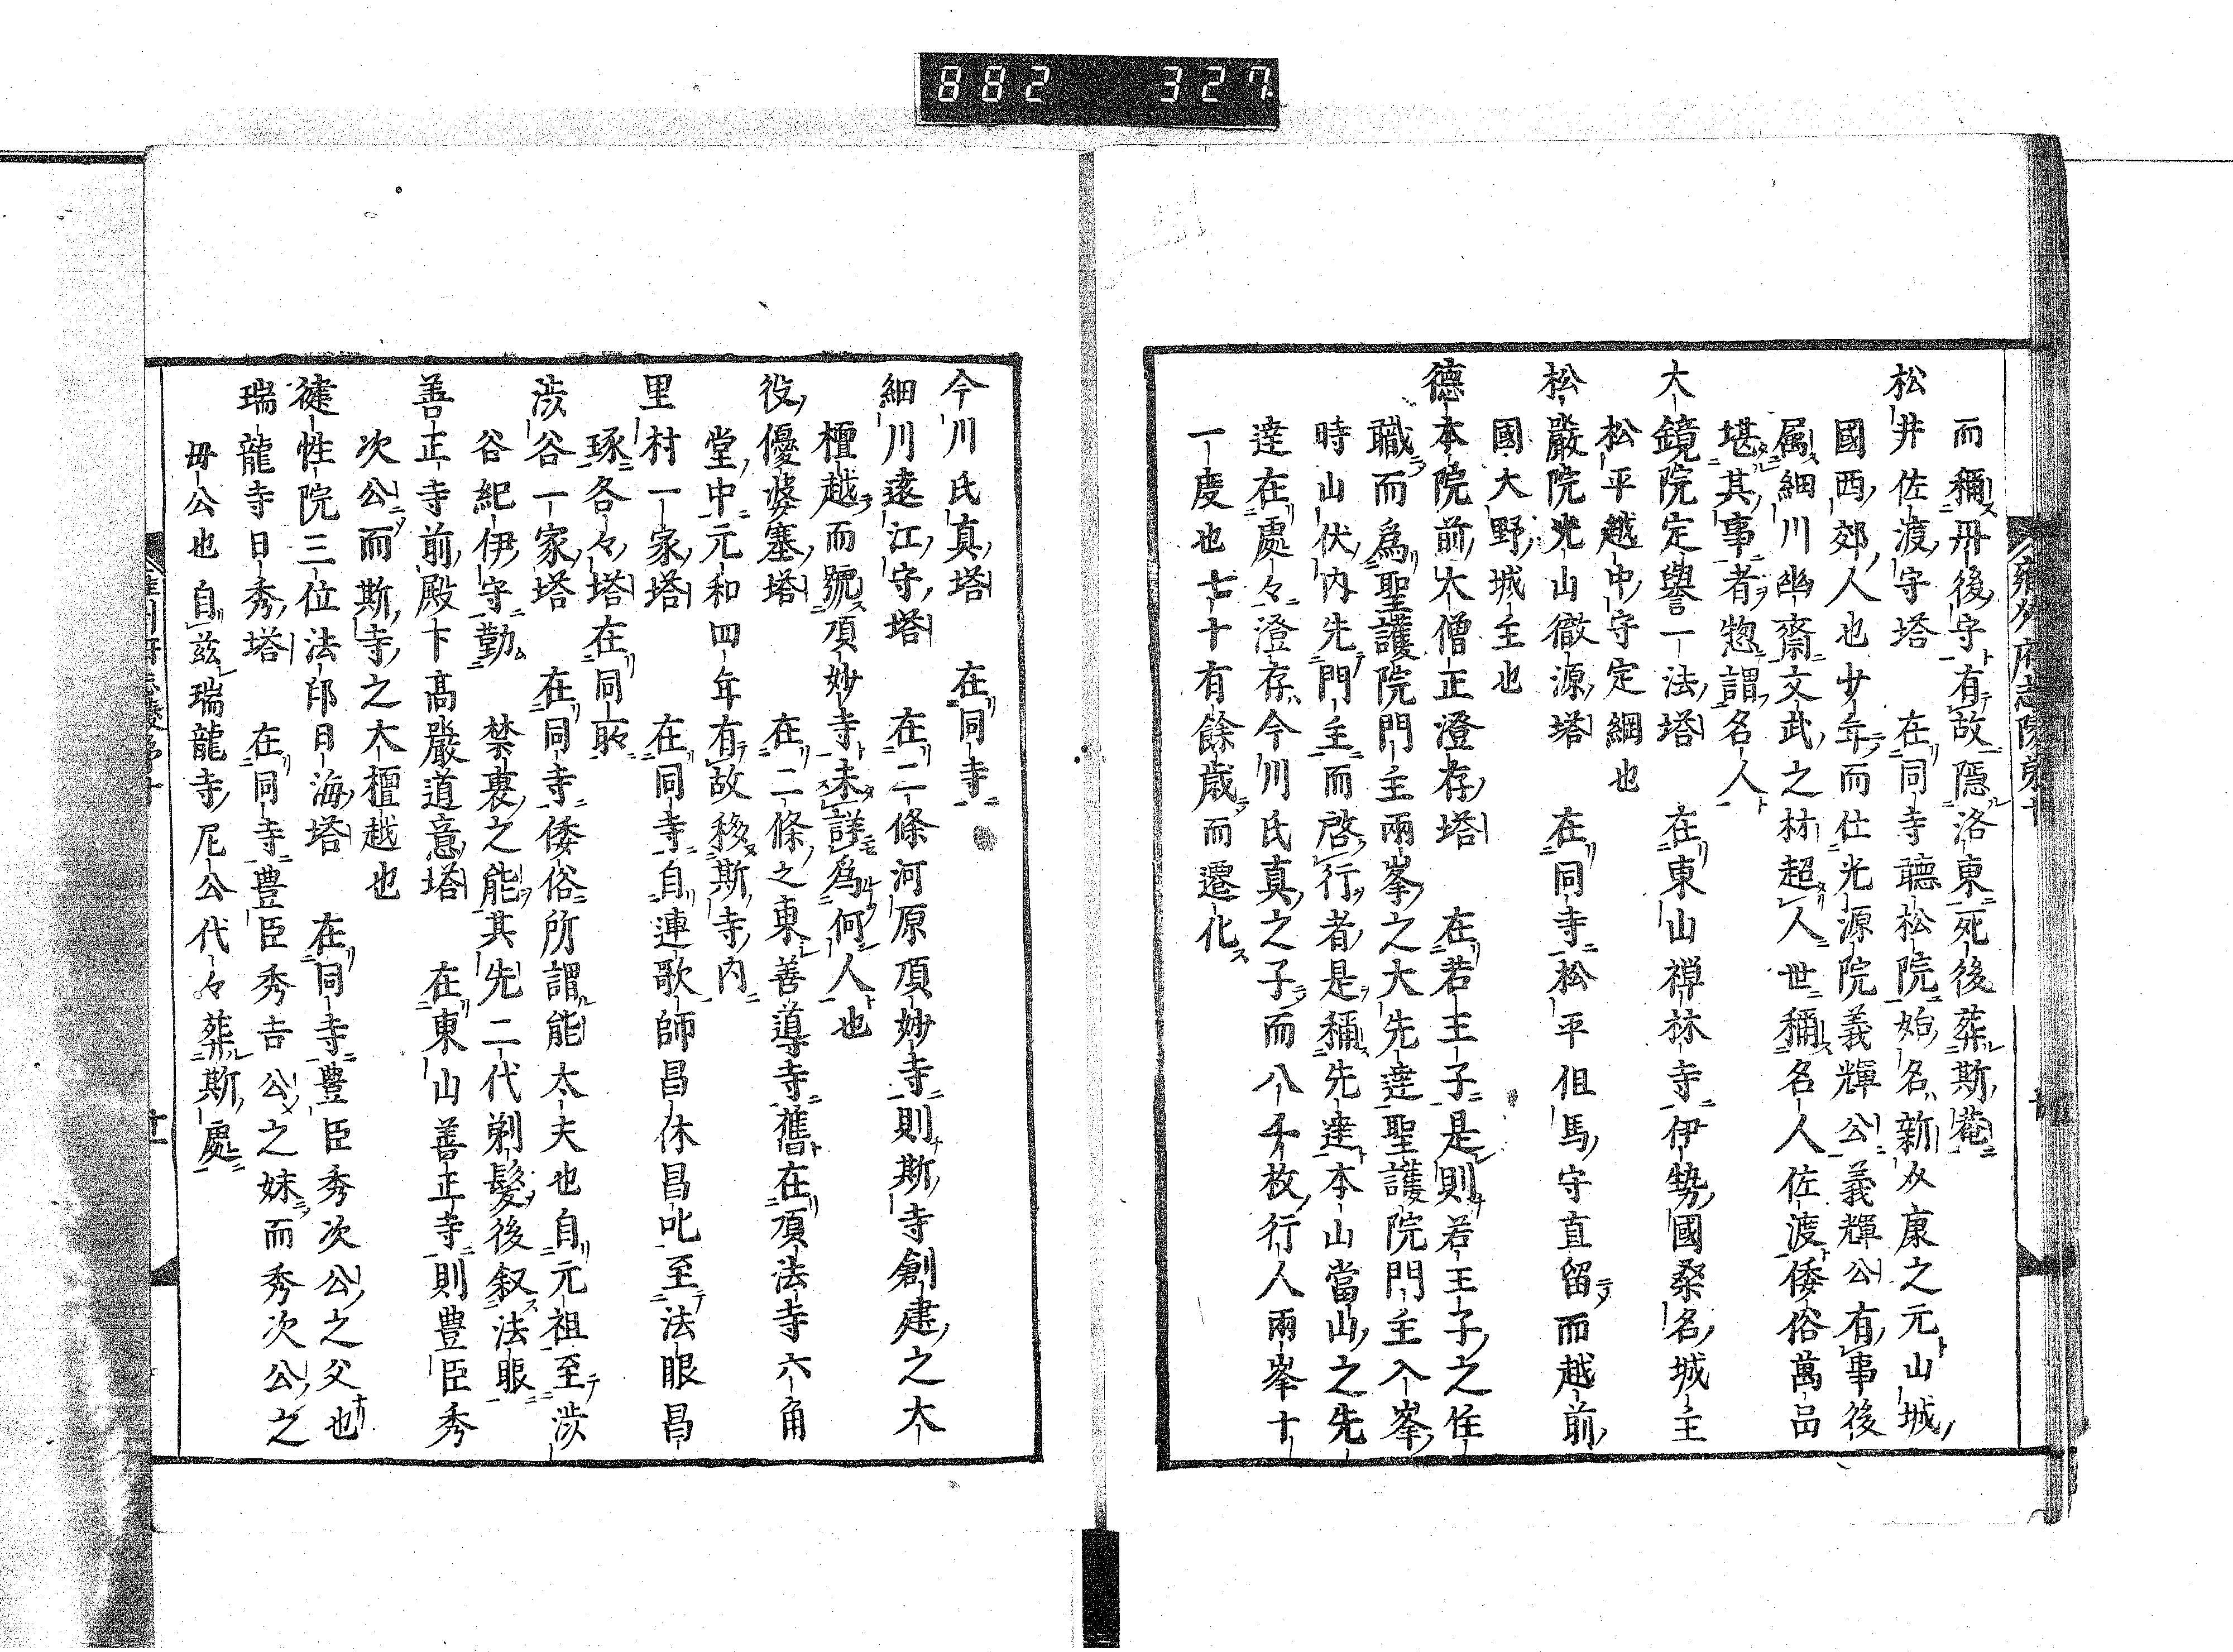 882 327
而稱丹後守有故隱洛東死後葬斯菴
松井佐渡守塔 在同寺聽松院始名新次康之元山城
國西郊人也少年而仕光源院義輝公義輝公有事後
属細川幽齋文武之材超人世稱名人佐渡倭俗萬品
堪其事者惣謂名人
大鏡院定譽一法塔 在東山禅林寺伊勢國桑名城主
松平越中守定綱也
松嚴院光山徹源塔 在同寺松平但馬守直留而越前
國大野城主也
德本院前大僧正澄存塔 在若王子是則若王子之住
職而爲聖護院門主兩峯之大先達聖護院門主入峯
時山伏內先門主而啓行者是稱先達本山當山之先
達在處々澄存今川氏真之子而八千枚行人兩峯十
一度也七十有餘歳而遷化
今川氏真塔 在同寺
細川遠江守塔 在二條河原頂妙寺則斯寺創建之大
檀越而號頂妙寺未詳爲何人也
役優婆塞塔 在二條之東善導寺舊在頂法寺六角
堂中元和四年有故移斯寺內
里村一家塔 在同寺自連歌師昌休昌叱至法眼昌
琢各々塔在同㪽
渋谷一家塔 在同寺倭俗所謂能太夫也自元祖至渋
谷紀伊守勤 禁裏之能其先二代剃髮後叙法眼
善正寺前殿下高嚴道意塔 在東山善正寺則豊臣秀
次公而斯寺之大檀越也
建性院三位法印日海塔 在同寺豊臣秀次公之父也
瑞龍寺日秀塔 在同寺豊臣秀吉公之妹而秀次公之
毋公也自茲瑞龍寺尼公代々葬斯處